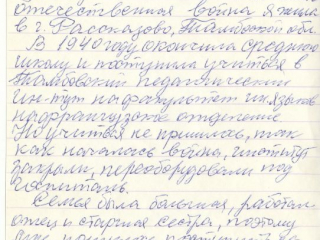 отечественная война я жила
в г. Рассказово, Тамбовской обл.
В 1940 году окончила среднюю
школу и поступила учиться в
Тамбовский педагогический
ин-тут на факультет ин. языков
на французское отделение.
Но учиться не пришлось, так
как началась война, институт
закрыли, переоборудовали под
госпиталь.
Семья была большая, работал
отец и старшая сестра, поэтому